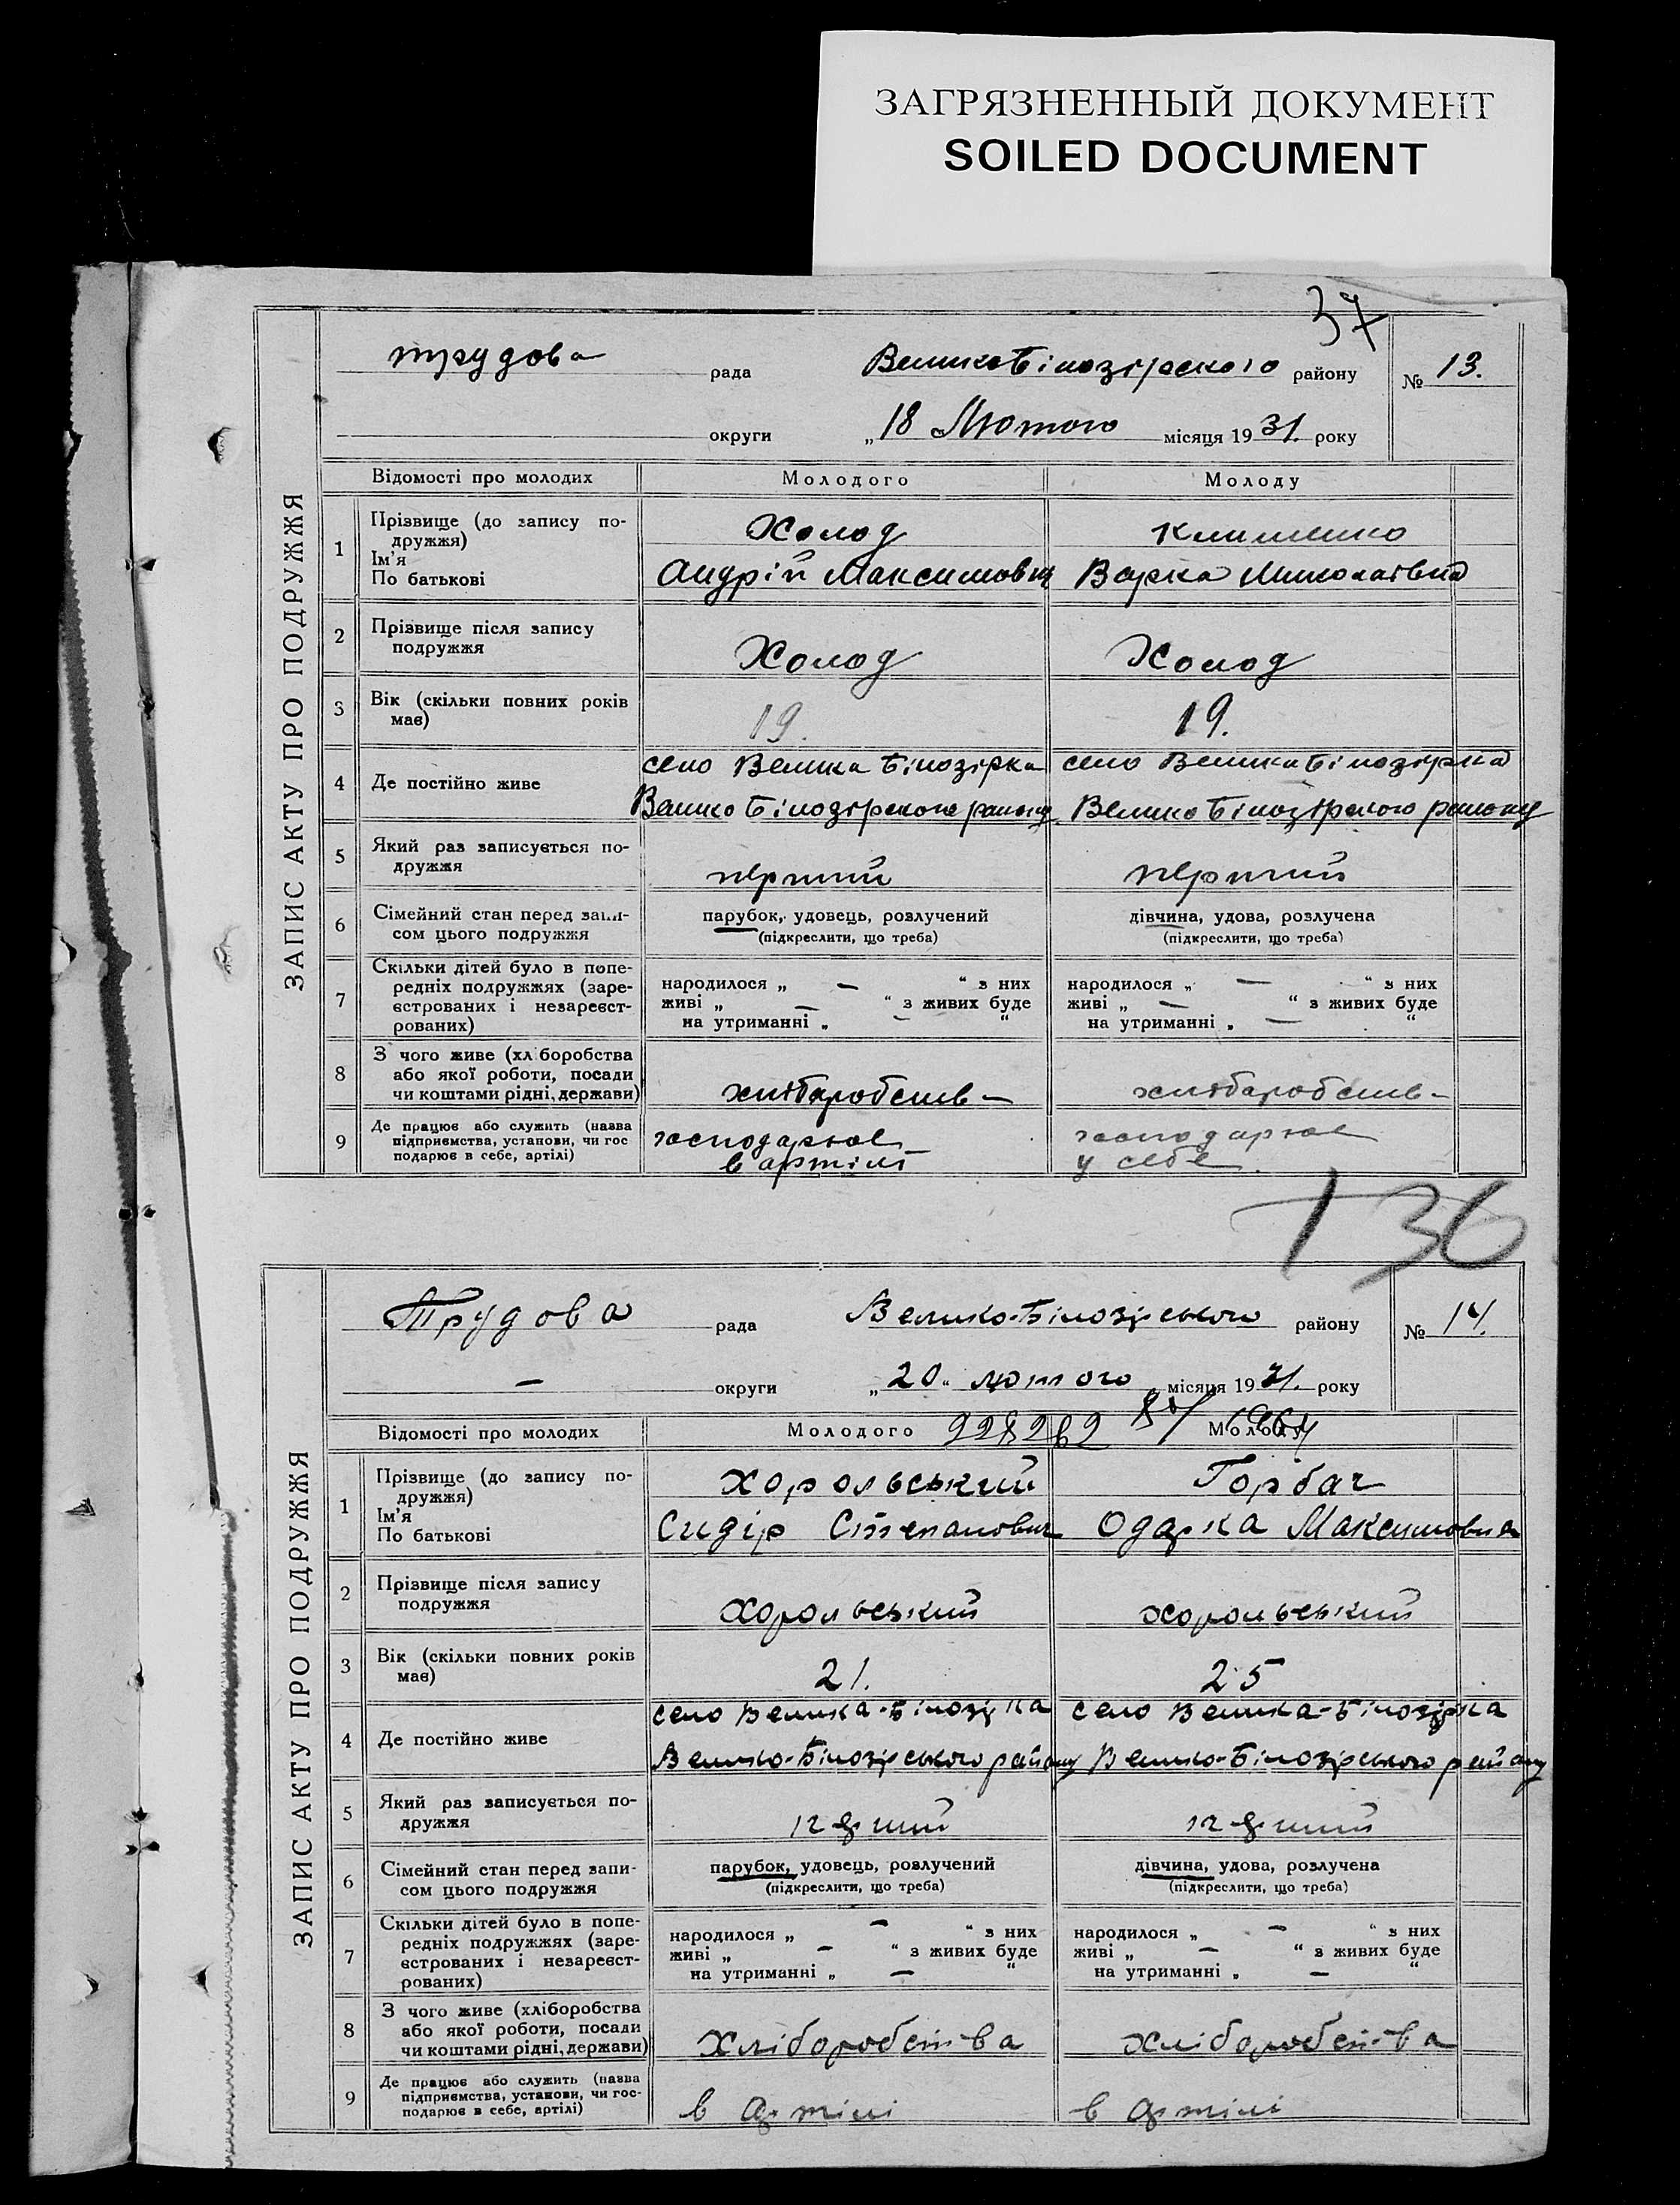 ЗАГРЯЗНЕННЫЙ ДОКУМЕНТ
SOILED DOCUMENT
37
ЗАПИС АКТУ ПРО ПОДРУЖЖЯ
трудова рада ВеликоБілозірского району № 13.
округи „ 18 Лютого місяця 1931. року
Відомості про молодих Молодого Молоду
1 Прізвище (до запису по-
дружжя)
Ім'я
По батькові
Холод Клименко
Андрій Максимович Варка Миколаівна
2 Прізвище після запису
подружжя
Холод Холод
3 Вік (скільки повних років
має)
19. 19.
4 Де постійно живе
село Велика Білозірка село Велика Білозірка
Велико Білозірского району Велико Білозірского району
5 Який раз записується по-
дружжя
перший перший
6 Сімейний стан перед запи-
сом цього подружжя
парубок, удовець, розлучений дівчина, удова, розлучена
(підкреслити, що треба) (підкреслити, що треба)
7 Скільки дітей було в попе-
редніх подружжях (заре-
єстрованих і незареєст-
рованих)
народилося „ — “ з них народилося „ — “ з них
живі „ — “ з живих буде живі „ — “ з живих буде
на утриманні „ — “ на утриманні „ — “
8 З чого живе (хліборобства
або якої роботи, посади
чи коштами рідні, держави)
9 Де працює або служить (назва
підприємства, установи, чи гос
подарює в себе, артілі)
господарює господарює
в артілі у себе
136
ЗАПИС АКТУ ПРО ПОДРУЖЖЯ
Трудова рада Велико-Білозірського району № 14.
— округи „ 20 “ лютого місяця 1931. року
Відомості про молодих Молодого Молоду
1 Прізвище (до запису по-
дружжя)
Ім'я
По батькові
Хорольський Горбач
Сидір Степанович Одарка Максимовна
2 Прізвище після запису
подружжя
Хорольський Хорольський
3 Вік (скільки повних років
має)
21. 25
4 Де постійно живе
село Велика-Білозірка село Велика-Білозірка
Велико-Білозірського району Велико-Білозірського району
5 Який раз записується по-
дружжя
6 Сімейний стан перед запи-
сом цього подружжя
парубок, удовець, розлучений дівчина, удова, розлучена
(підкреслити, що треба) (підкреслити, що треба)
7 Скільки дітей було в попе-
редніх подружжях (заре-
єстрованих і незареєст-
рованих)
народилося „ — “ з них народилося „ — “ з них
живі „ — “ з живих буде живі „ — “ з живих буде
на утриманні „ — “ на утриманні „ — “
8 З чого живе (хліборобства
або якої роботи, посади
чи коштами рідні, держави)
Хліборобства хліборобства
9 Де працює або служить (назва
підприємства, установи, чи гос-
подарює в себе, артілі)
в артілі в артілі